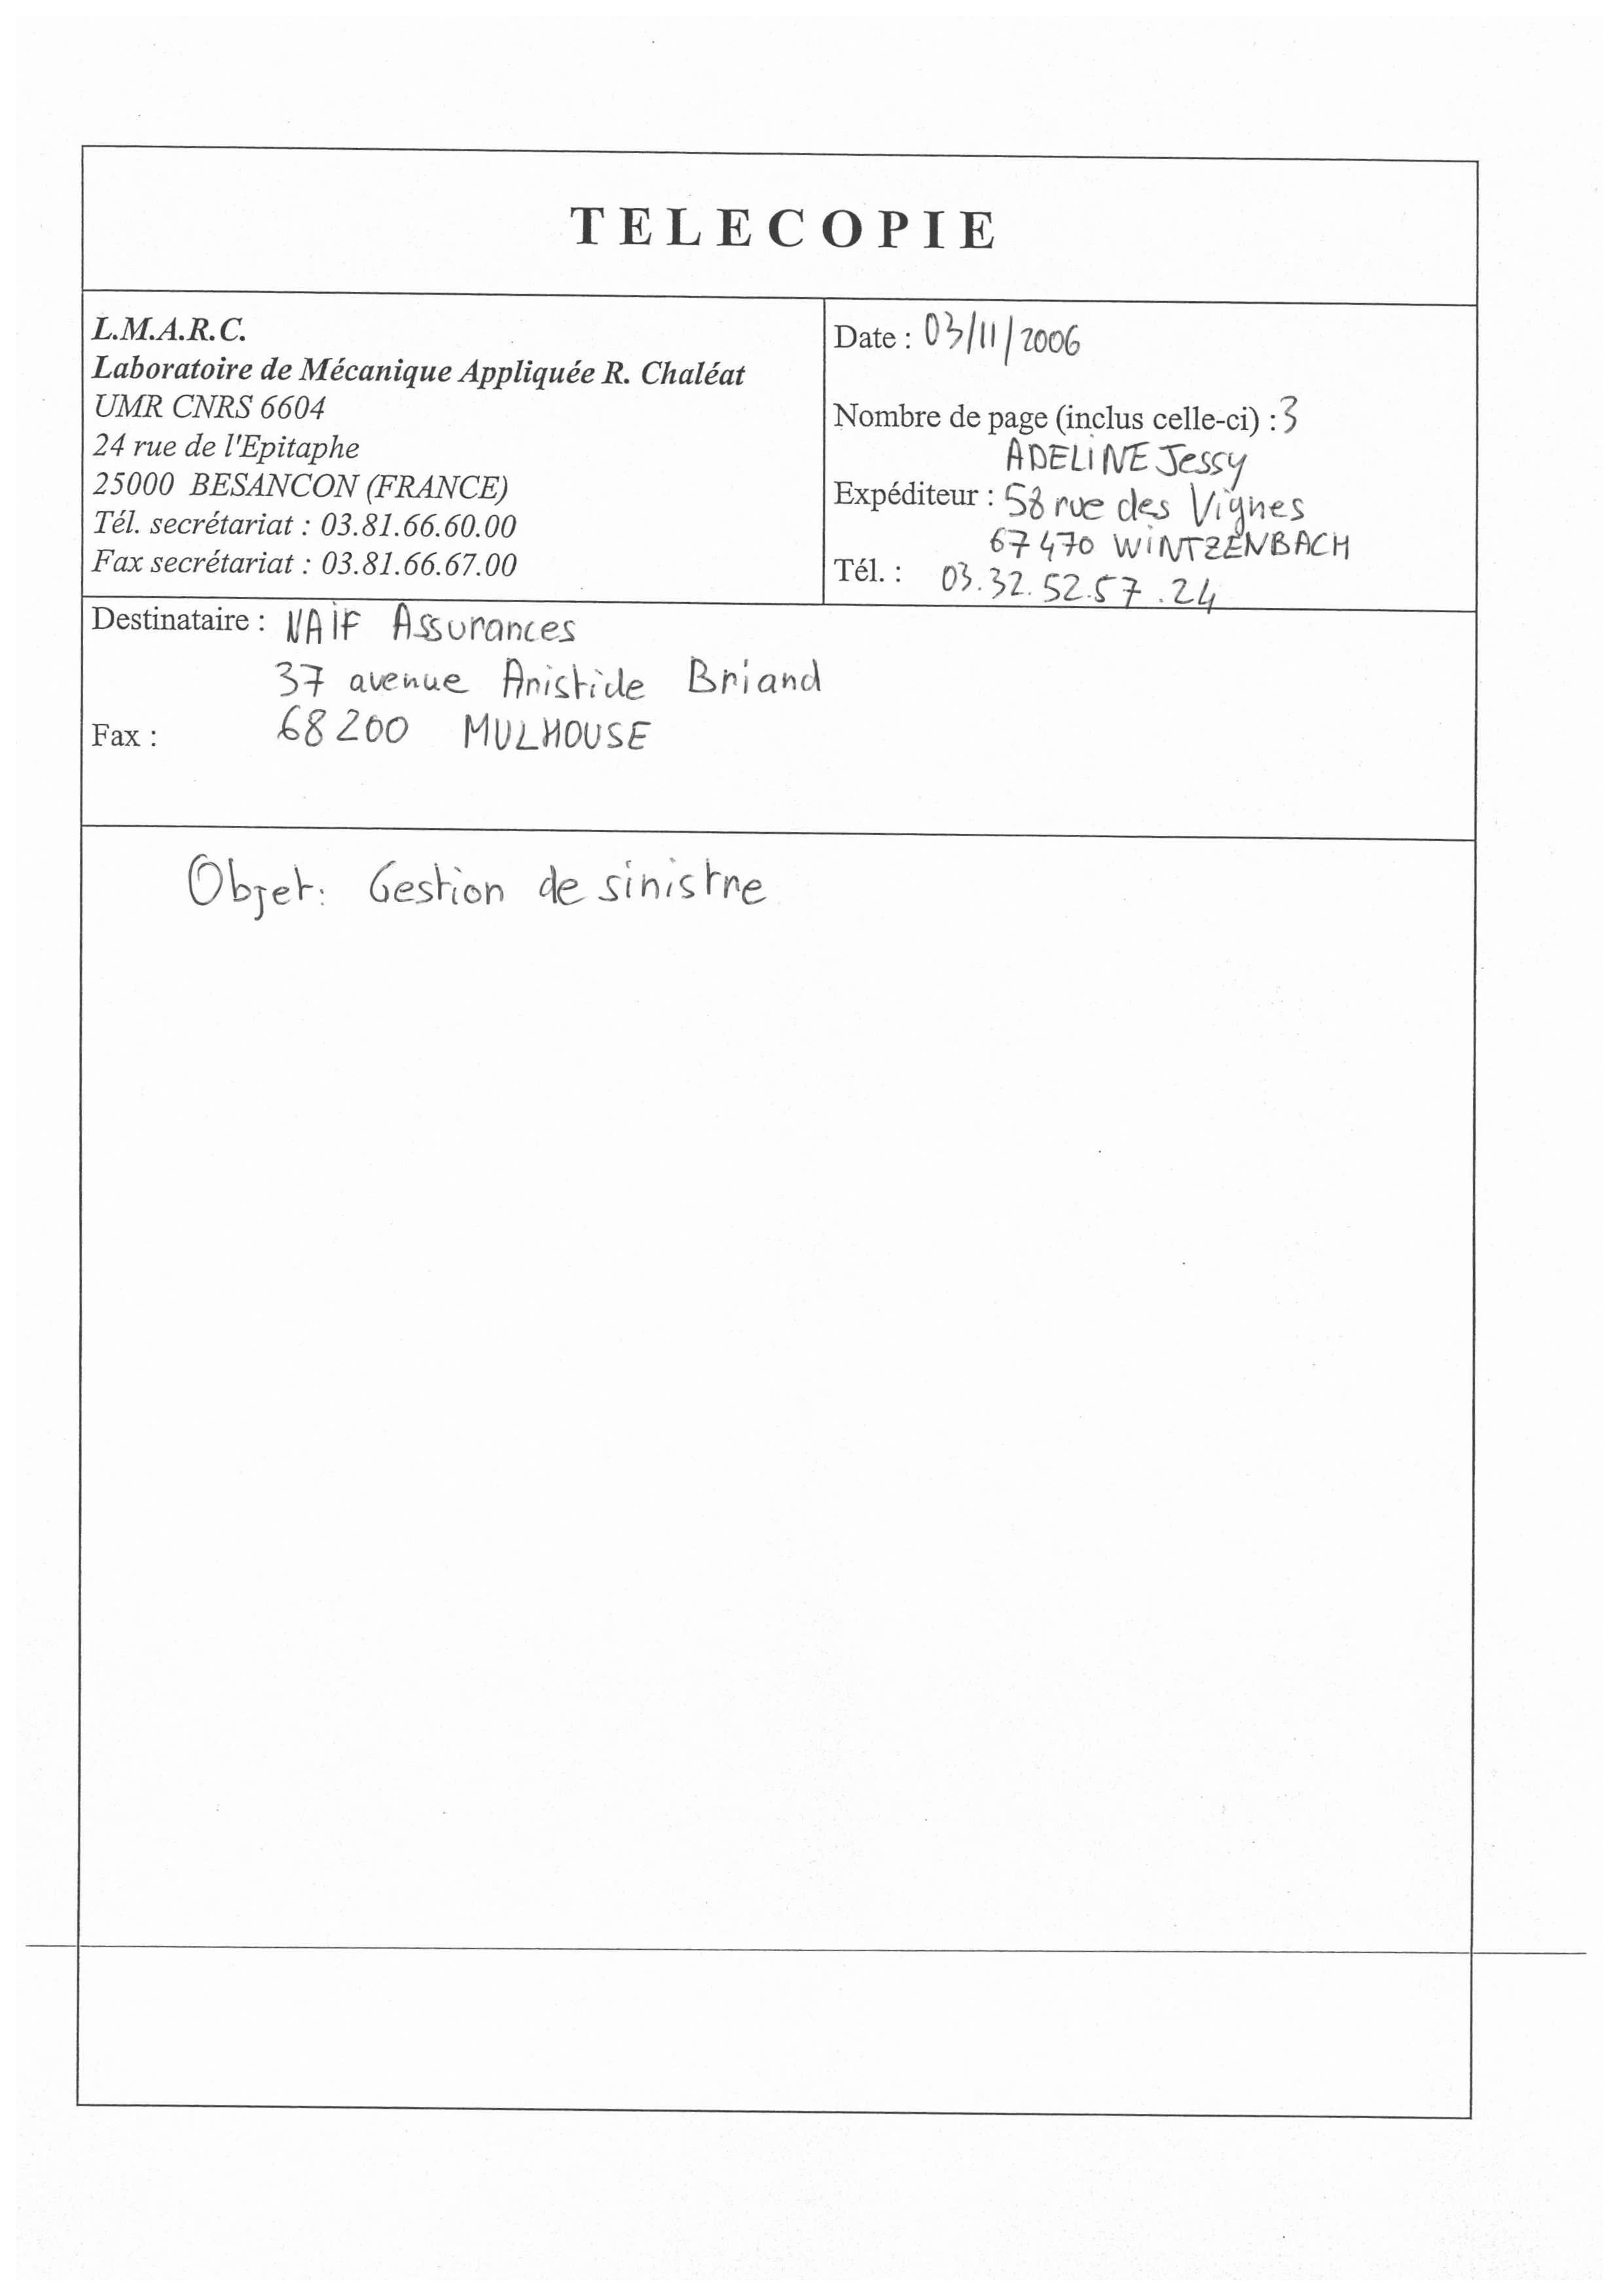 TELECOPIE
L.M.A.R.C.
Laboratoire de Mécanique Appliquée R. Chaléat
UMR CNRS 6604
24 rue de l'Epitaphe
25000 BESANCON (FRANCE)
Tél. secrétariat : 03.81.66.60.00
Fax secrétariat : 03.81.66.67.00
Date : 03/11/2006
Nombre de page (inclus celle-ci) : 3
ADELINE Jessy
Expéditeur : 58 rue des Vignes
67470 WINTZENBACH
Tél. : 03.32.52.57.24
Destinataire : NAIF Assurances
37 avenue Aristide Briand
Fax : 68200 MULHOUSE
Objet: Gestion de sinistre